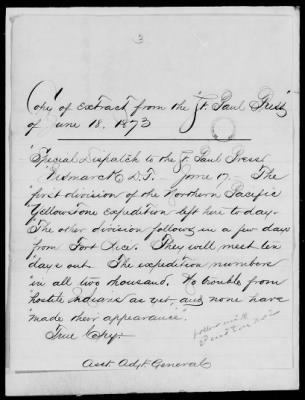 3
Copy of extract from the "St. Paul Press"
of June 18, 1873
"Special Dispatch to the St Paul Press
Bismarck D.T. June 17. The
first division of the Northern Pacific
Yellowstone expedition left here to-day.
The other division follows in a few days
from Fort Rice. They will meet ten
days out. The expedition numbers
in all two thousand. No trouble from
hostile Indians as yet, and none have
made their appearance".
True Copy.
Asst. Adjt. General